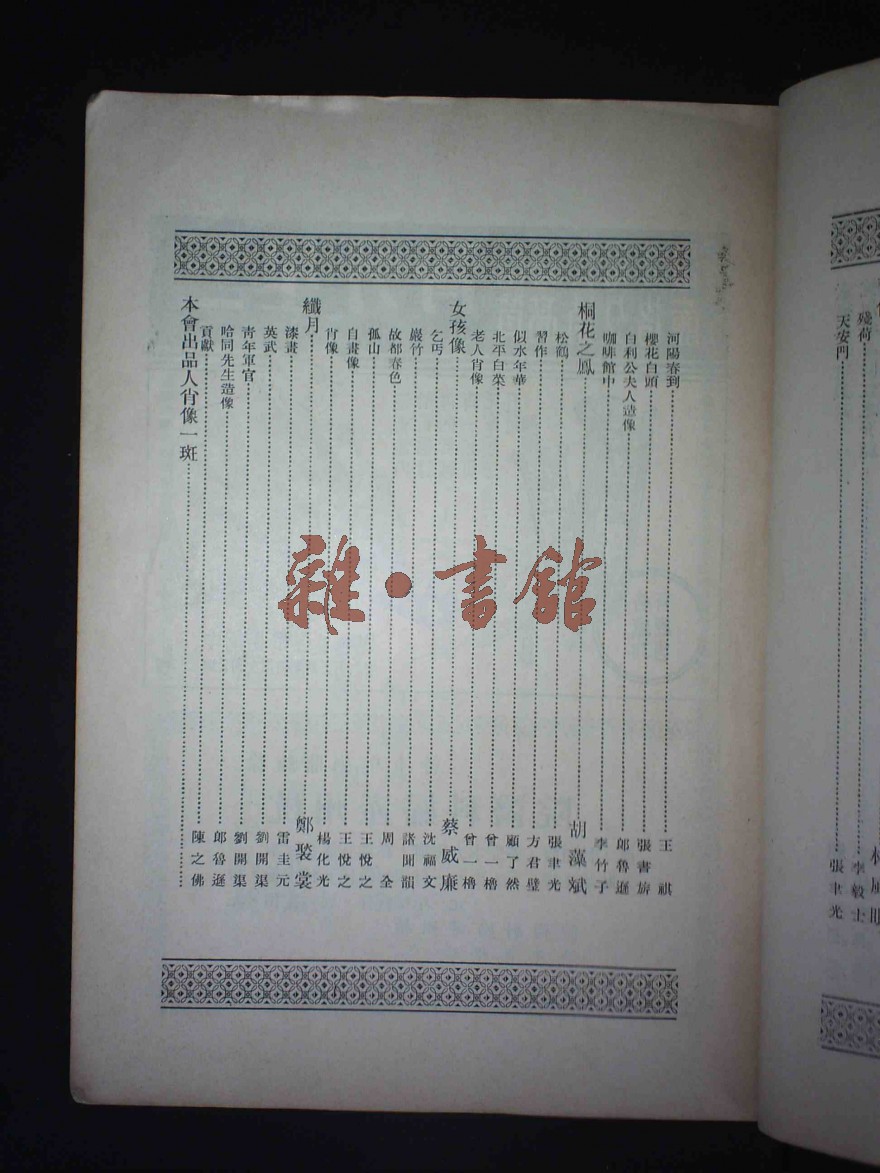 殘荷 李毅士
天安門 張聿光
河陽春到 王祺
櫻花白頭 張書旂
白利公夫人造像 郎魯遜
咖啡館中 李竹子
桐花之鳳 胡藻斌
松鶴 張聿光
習作 方君璧
似水年華 顧了然
北平白菜 曾一櫓
老人肖像 曾一櫓
女孩像 蔡威廉
乞丐 沈福文
巖竹 諸聞韻
故都春色 周全
孤山 王悅之
自畫像 王悅之
肖像 楊化光
纖月 鄭褧裳
漆畫 雷圭元
英武 劉開渠
靑年軍官 劉開渠
哈同先生造像 郎魯遜
貢獻 陳之佛
本會出品人肖像一斑
雜·書館